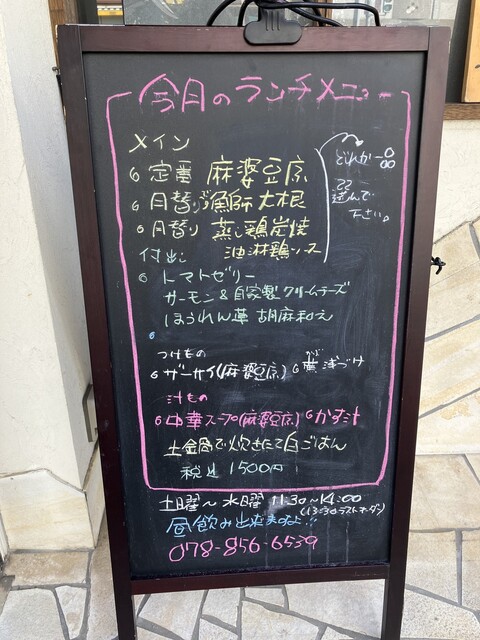 今月のランチメニュー
メイン
定番 麻婆豆腐
月替り 漁師大根
月替り 蒸し鶏炭焼
油淋鶏ソース
どれか一つ
選んで
下さい。
付出し
トマトゼリー
サーモン&自家製クリームチーズ
ほうれん草 胡麻和え
つけもの
ザーサイ(麻婆豆腐) かぶ 浅づけ
汁もの
中華スープ(麻婆豆腐) かす汁
土釜鍋で炊きたて白ごはん
税込 1500円
土曜〜水曜 11:30〜14:00
(13:30ラストオーダー)
昼飲み出来ますよ!!
078-856-6539